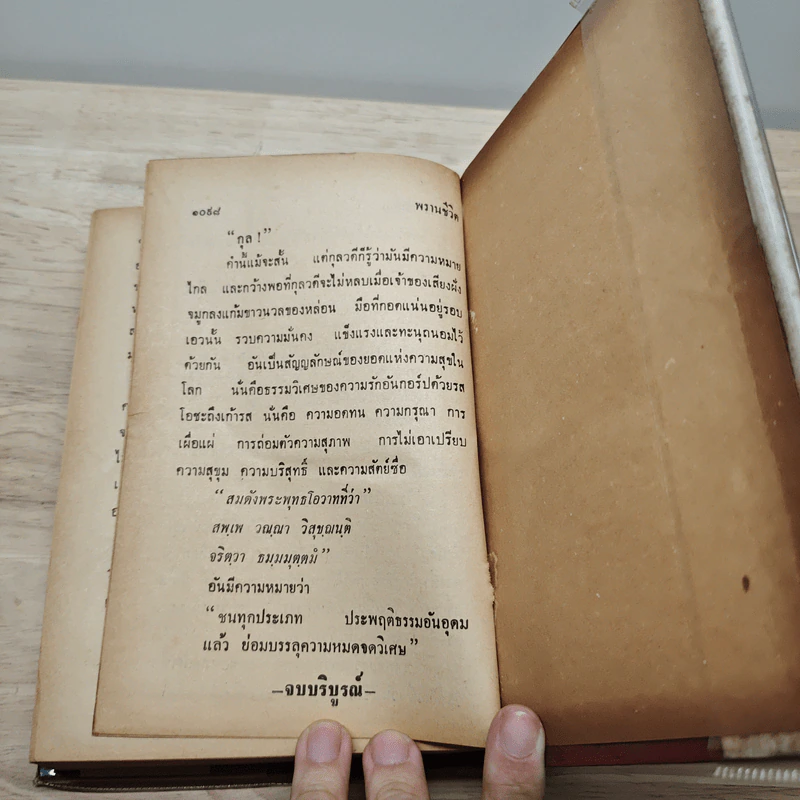 ๑๐๕๘ พรานชีวิต
“กุล !”
คำนี้แม้จะสั้น แต่กุลวดีก็รู้ว่ามันมีความหมาย
ไกล และกว้างพอที่กุลวดีจะไม่หลบเมื่อเจ้าของเสียงฝัง
จมูกลงแก้มขาวนวลของหล่อน มือที่กอดแน่นอยู่รอบ
เอวนั้น รวบความมั่นคง แข็งแรงและทะนุถนอมไว้
ด้วยกัน อันเป็นสัญญลักษณ์ของยอดแห่งความสุขใน
โลก นั่นคือธรรมวิเศษของความรักอันกอร์ปด้วยรส
โอชะถึงเก้ารส นั่นคือ ความอดทน ความกรุณา การ
เผื่อแผ่ การถ่อมตัวความสุภาพ การไม่เอาเปรียบ
ความสุขุม ความบริสุทธิ์ และความสัตย์ซื่อ
“สมดังพระพุทธโอวาทที่ว่า”
สพฺเพ วณฺณา วิสุชฺฌนฺติ
จริตฺวา ธมฺมมุตฺตมํ”
อันมีความหมายว่า
“ชนทุกประเภท ประพฤติธรรมอันอุดม
แล้ว ย่อมบรรลุความหมดจดวิเศษ”
—จบบริบูรณ์—